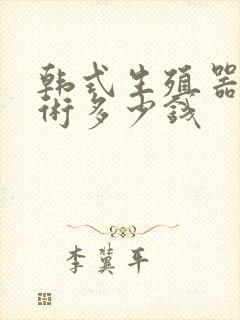 韩式生殖器
術多少钱
李冀平